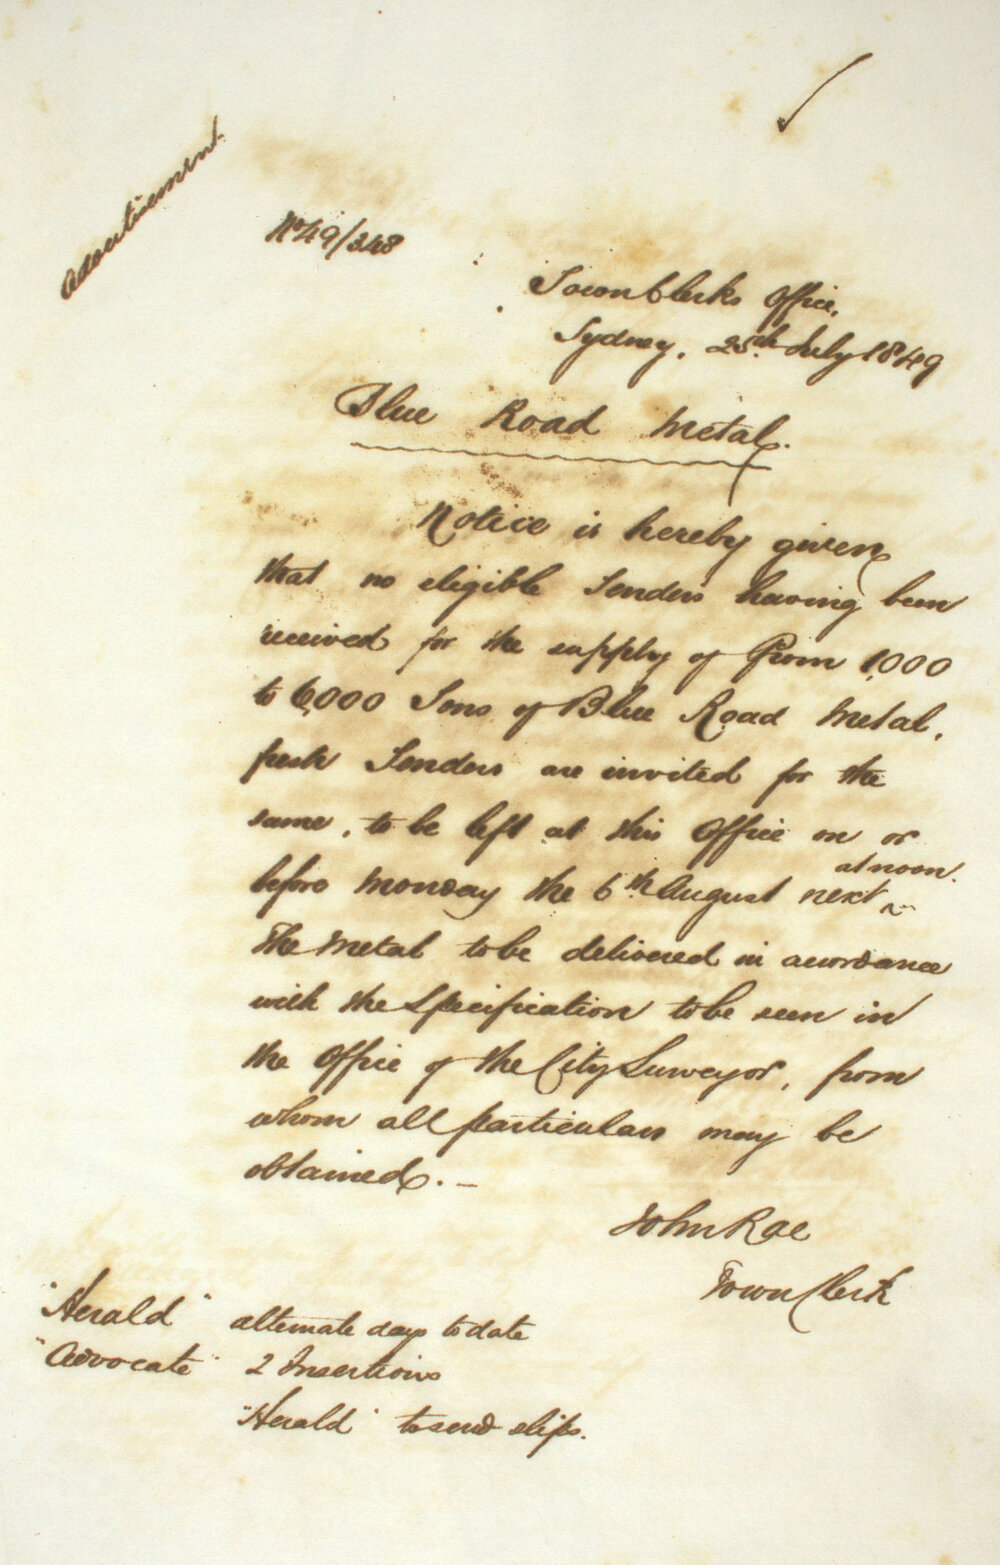 Advertisement
No 49/348
Town Clerks Office,
Sydney, 25th July 1849
Blue Road Metal.
Notice is hereby given
that no eligible Tenders having been
received for the supply of from 1,000
to 6,000 Tons of Blue Road Metal,
fresh Tenders are invited for the
same, to be left at this Office on or
before Monday the 6th August next at noon.
The Metal to be delivered in acordance
with the Specification to be seen in
the Office of the City Surveyor, from
whom all particulars may be
obtained. –
John Rae
Town Clerk
"Herald" alternate days to date
"Advocate" 2 Insertions
"Herald" to send slips.